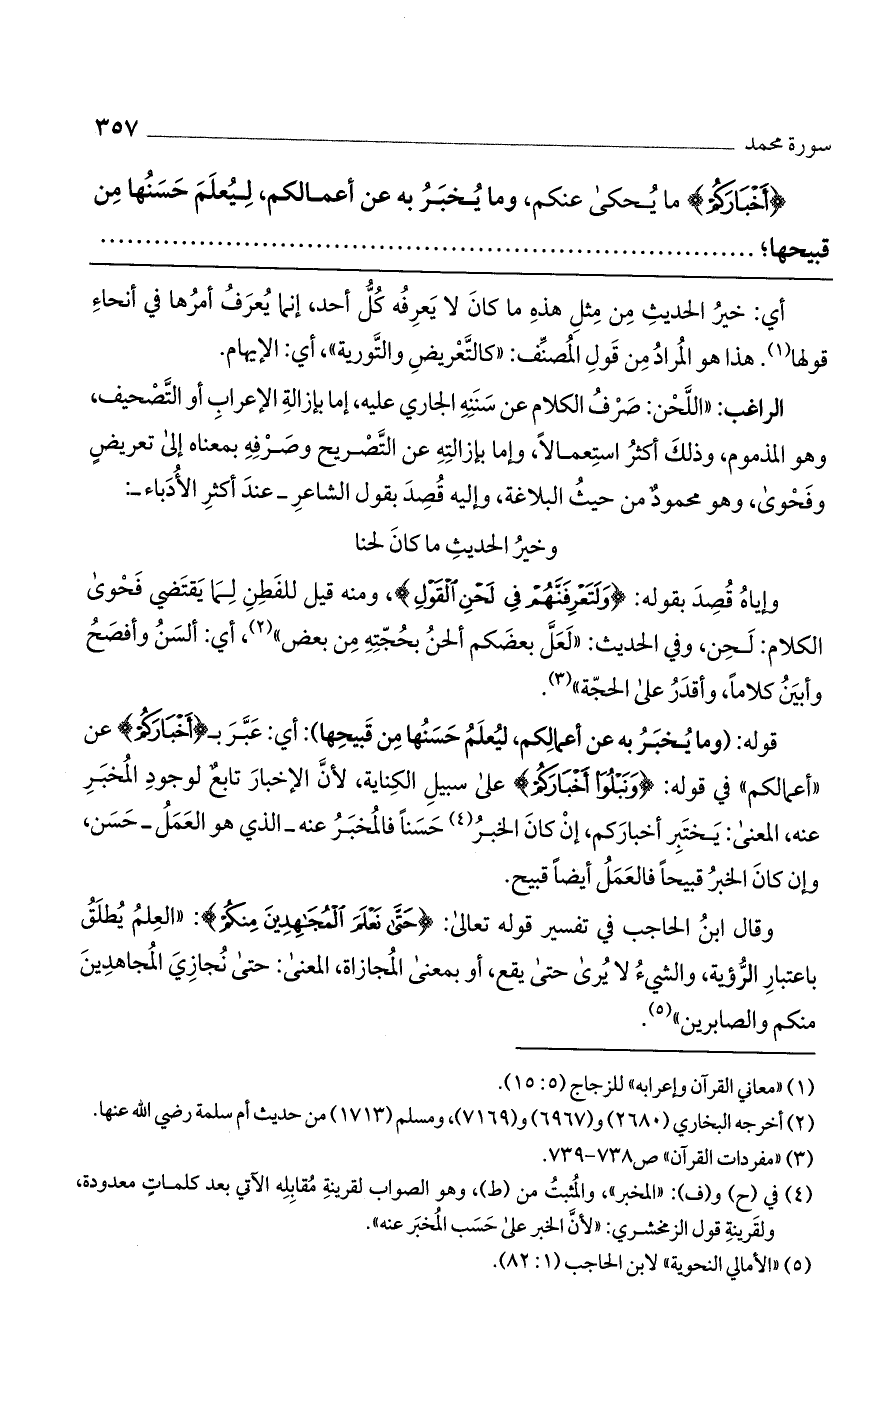 سورة محمد ٣٥٧
﴿أَخْبَارَكُمْ﴾ ما يُـحكىٰ عنكم، وما يُـخبَـرُ به عن أعمـالكم، لِـيُعلَمَ حَسَنُها مِن
قبيحها؛ ..........................................................................
أي: خيرُ الحديثِ مِن مِثلِ هذهِ ما كانَ لا يَعرِفُه كُلُّ أحد، إنما يُعرَفُ أمرُها في أنحاءِ
قولها(١). هذا هو المُرادُ مِن قَولِ المُصنِّف: «كالتَّعْريضِ والتَّورية»، أي: الإيهام.
الراغب: «اللَّحْن: صَرْفُ الكلام عن سَنَنِهِ الجاري عليه، إما بإزالةِ الإعرابِ أو التَّصْحيف،
وهو المذموم، وذلكَ أكثرُ استِعمـالاً، وإما بإزالتِهِ عن التَّصْـريح وصَـرْفِهِ بمعناه إلىٰ تعريضٍ
وفَحْوىٰ، وهو محمودٌ من حيثُ البلاغة، وإليه قُصِدَ بقول الشاعرِ ـ عندَ أكثرِ الأُدَباء ـ:
وخيرُ الحديثِ ما كانَ لحنا
وإياهُ قُصِدَ بقوله: ﴿وَلَتَعْرِفَنَّهُمْ فِي لَحْنِ ٱلْقَوْلِ﴾، ومنه قيل للفَطِنِ لِـمَا يَقتَضي فَحْوىٰ
الكلام: لَـحِن، وفي الحديث: «لَعَلَّ بعضَكم ألحنُ بحُجّتِهِ مِن بعض»(٢)، أي: ألسَنُ وأفصَحُ
وأبيَنُ كلاماً، وأقدَرُ علىٰ الحجّة»(٣).
قوله: (وما يُـخبَـرُ به عن أعمالِكم، ليُعلَمُ حَسَنُها مِن قَبيحِها): أي: عَبَّرَ بـ﴿أَخْبَارَكُمْ﴾ عن
«أعمالكم» في قوله: ﴿وَنَبْلُوَا۟ أَخْبَارَكُمْ﴾ علىٰ سبيلِ الكِناية، لأنَّ الإخبارَ تابعٌ لوجودِ المُخبَـرِ
عنه، المعنىٰ: يَـختَبِر أخبارَكم، إنْ كانَ الخبرُ(٤) حَسَناً فالمُخبَرُ عنه ـ الذي هو العَمَلُ ـ حَسَن،
وإن كانَ الخبرُ قبيحاً فالعَمَلُ أيضاً قبيح.
وقال ابنُ الحاجب في تفسير قوله تعالىٰ: ﴿حَتَّىٰ نَعْلَمَ ٱلْمُجَٰهِدِينَ مِنكُمْ﴾: «العِلمُ يُطلَقُ
باعتبارِ الرُّؤية، والشيءُ لا يُرىٰ حتىٰ يقع، أو بمعنىٰ المُجازاة، المعنىٰ: حتىٰ نُجازِيَ المُجاهدِينَ
منكم والصابرين»(٥).
(١) «معاني القرآن وإعرابه» للزجاج (٥: ١٥).
(٢) أخرجه البخاري (٢٦٨٠) و(٦٩٦٧) و(٧١٦٩)، ومسلم (١٧١٣) من حديث أم سلمة رضي الله عنها.
(٣) «مفردات القرآن» ص٧٣٨-٧٣٩.
(٤) في (ح) و(ف): «المخبر»، والمُثبتُ من (ط)، وهو الصواب لقرينةِ مُقابِلِه الآتي بعد كلمـاتٍ معدودة،
ولقَرينةِ قول الزمخشـري: «لأنَّ الخبر علىٰ حَسَب المُخبَر عنه».
(٥) «الأمالي النحوية» لابن الحاجب (١: ٨٢).